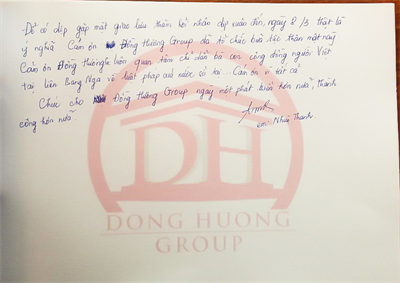 Để có dịp gặp mặt giao lưu thân hơi nhân dịp xuân đến, ngày 8/3 thật là
ý nghĩa. Cảm ơn Đông Hương Group đã tổ chức bữa tiệc thân mật này
Cảm ơn Đông Hương luôn quan tâm chỉ dẫn bà con cộng đồng người Việt
tại liên bang Nga về luật pháp quả nước sở tại. Cảm ơn tất cả
Chúc cho Đông Hương Group ngày một phát triển hơn nữa, thành
công hơn nữa
em: Như Thanh
DH
DONG HUONG
GROUP